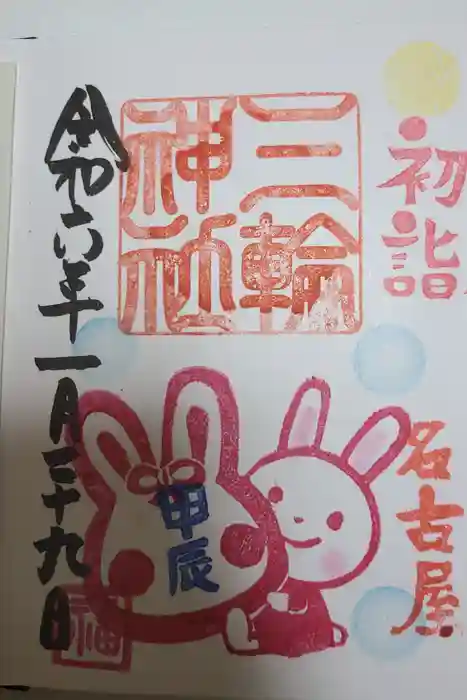 初詣
名古屋
三輪
神社
甲辰
福
令和六年一月二十九日